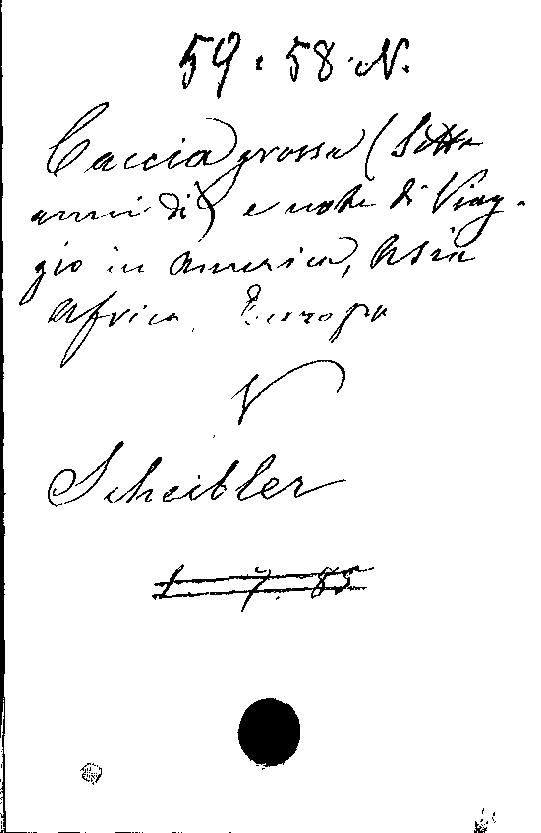 59. 58. N.
Caccia grossa (Sette
anni di) e note di Viag-
gio in America, Asia
Africa, Europa
V
Scheibler
1. 7. 85